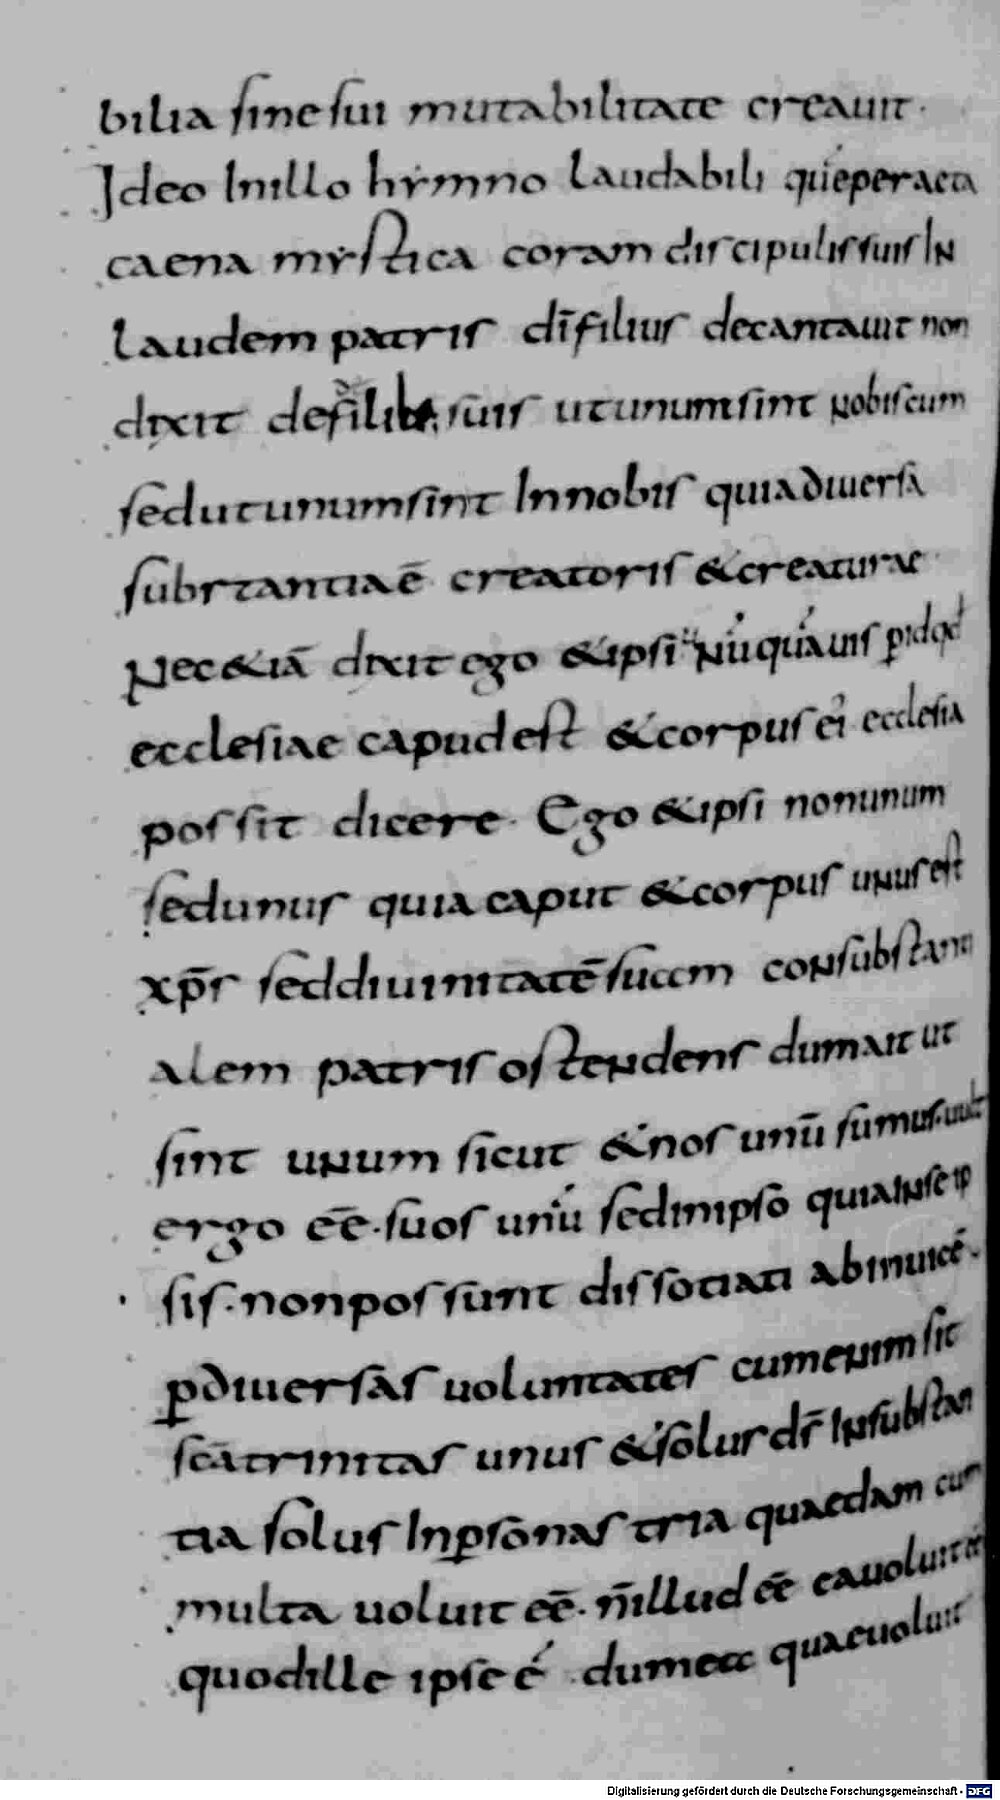 bilia sine sui mutabilitate creauit.
Ideo In illo hẏmno laudabili quẽ peracta
caena mẏstica coram discipulis suis IN
laudem patris dī filius decantauit non
dixit de filiis suis ut unum sint Nobiscum
sed ut unum sint In nobis quia diuersa
substantia ē creatoris & creaturae
Nec &iā dixit ego & ipsi Nūquā uis
ecclesiae capud est & corpus ei ecclesia
possit dicere. Ego & ipsi non unum
sed unus quia caput & corpus uNus est
xp̄s sed diuinitatē suam coNsubstanti
alem patris osteNdens dum ait ut
sint uNum sicut & nos unū sumus. uult
ergo eē. suos unū sed in ipso quia IN se ip
sis. non possunt dissotiati ab inuicē.
ꝑ diuersas uoluntates cum eNim sit
sc̄a trinitas unus & solus ds̄ IN substan
tia solus In ꝑsonas tria quaedam cum
multa uoluit eē. n̄ illud eē ea uoluit eē
quod ille ipse ē. dum ea quae uoluit